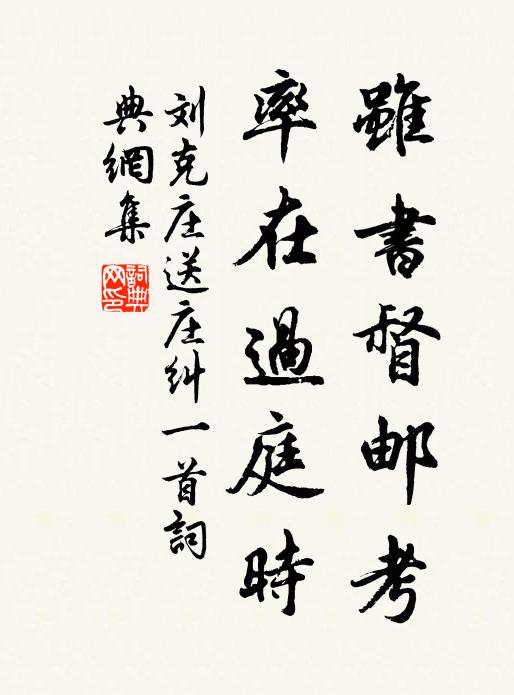 雖書督邮考
率在過庭時
刘克庄送庄糾一首詞
典網集
詞典網印